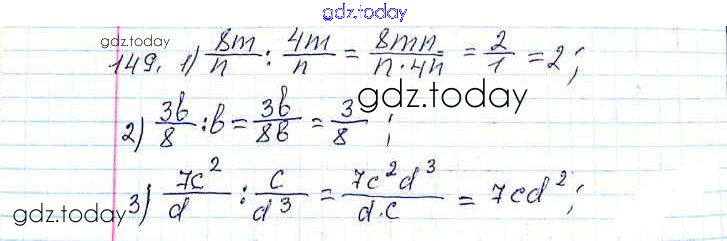 gdz.today
gdz.today
149. 1) 8m/n : 4m/n = 8mn/n·4n = 2/1 = 2;
gdz.today
2) 3b/8 : b = 3b/8b = 3/8;
3) 7c²/d : c/d³ = 7c²d³/d·c = 7cd²;
gdz.today